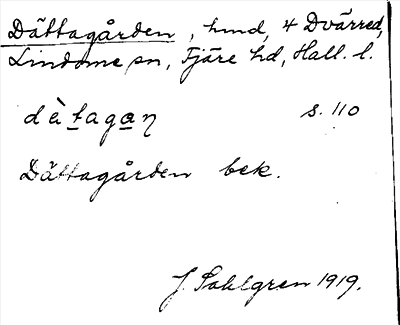 Dättagården, hmd, 4 Dvärred,
Lindome sn, Fjäre hd, Hall. l.
dètagan s. 110
Dättagården bek.
J. Sahlgren 1919.